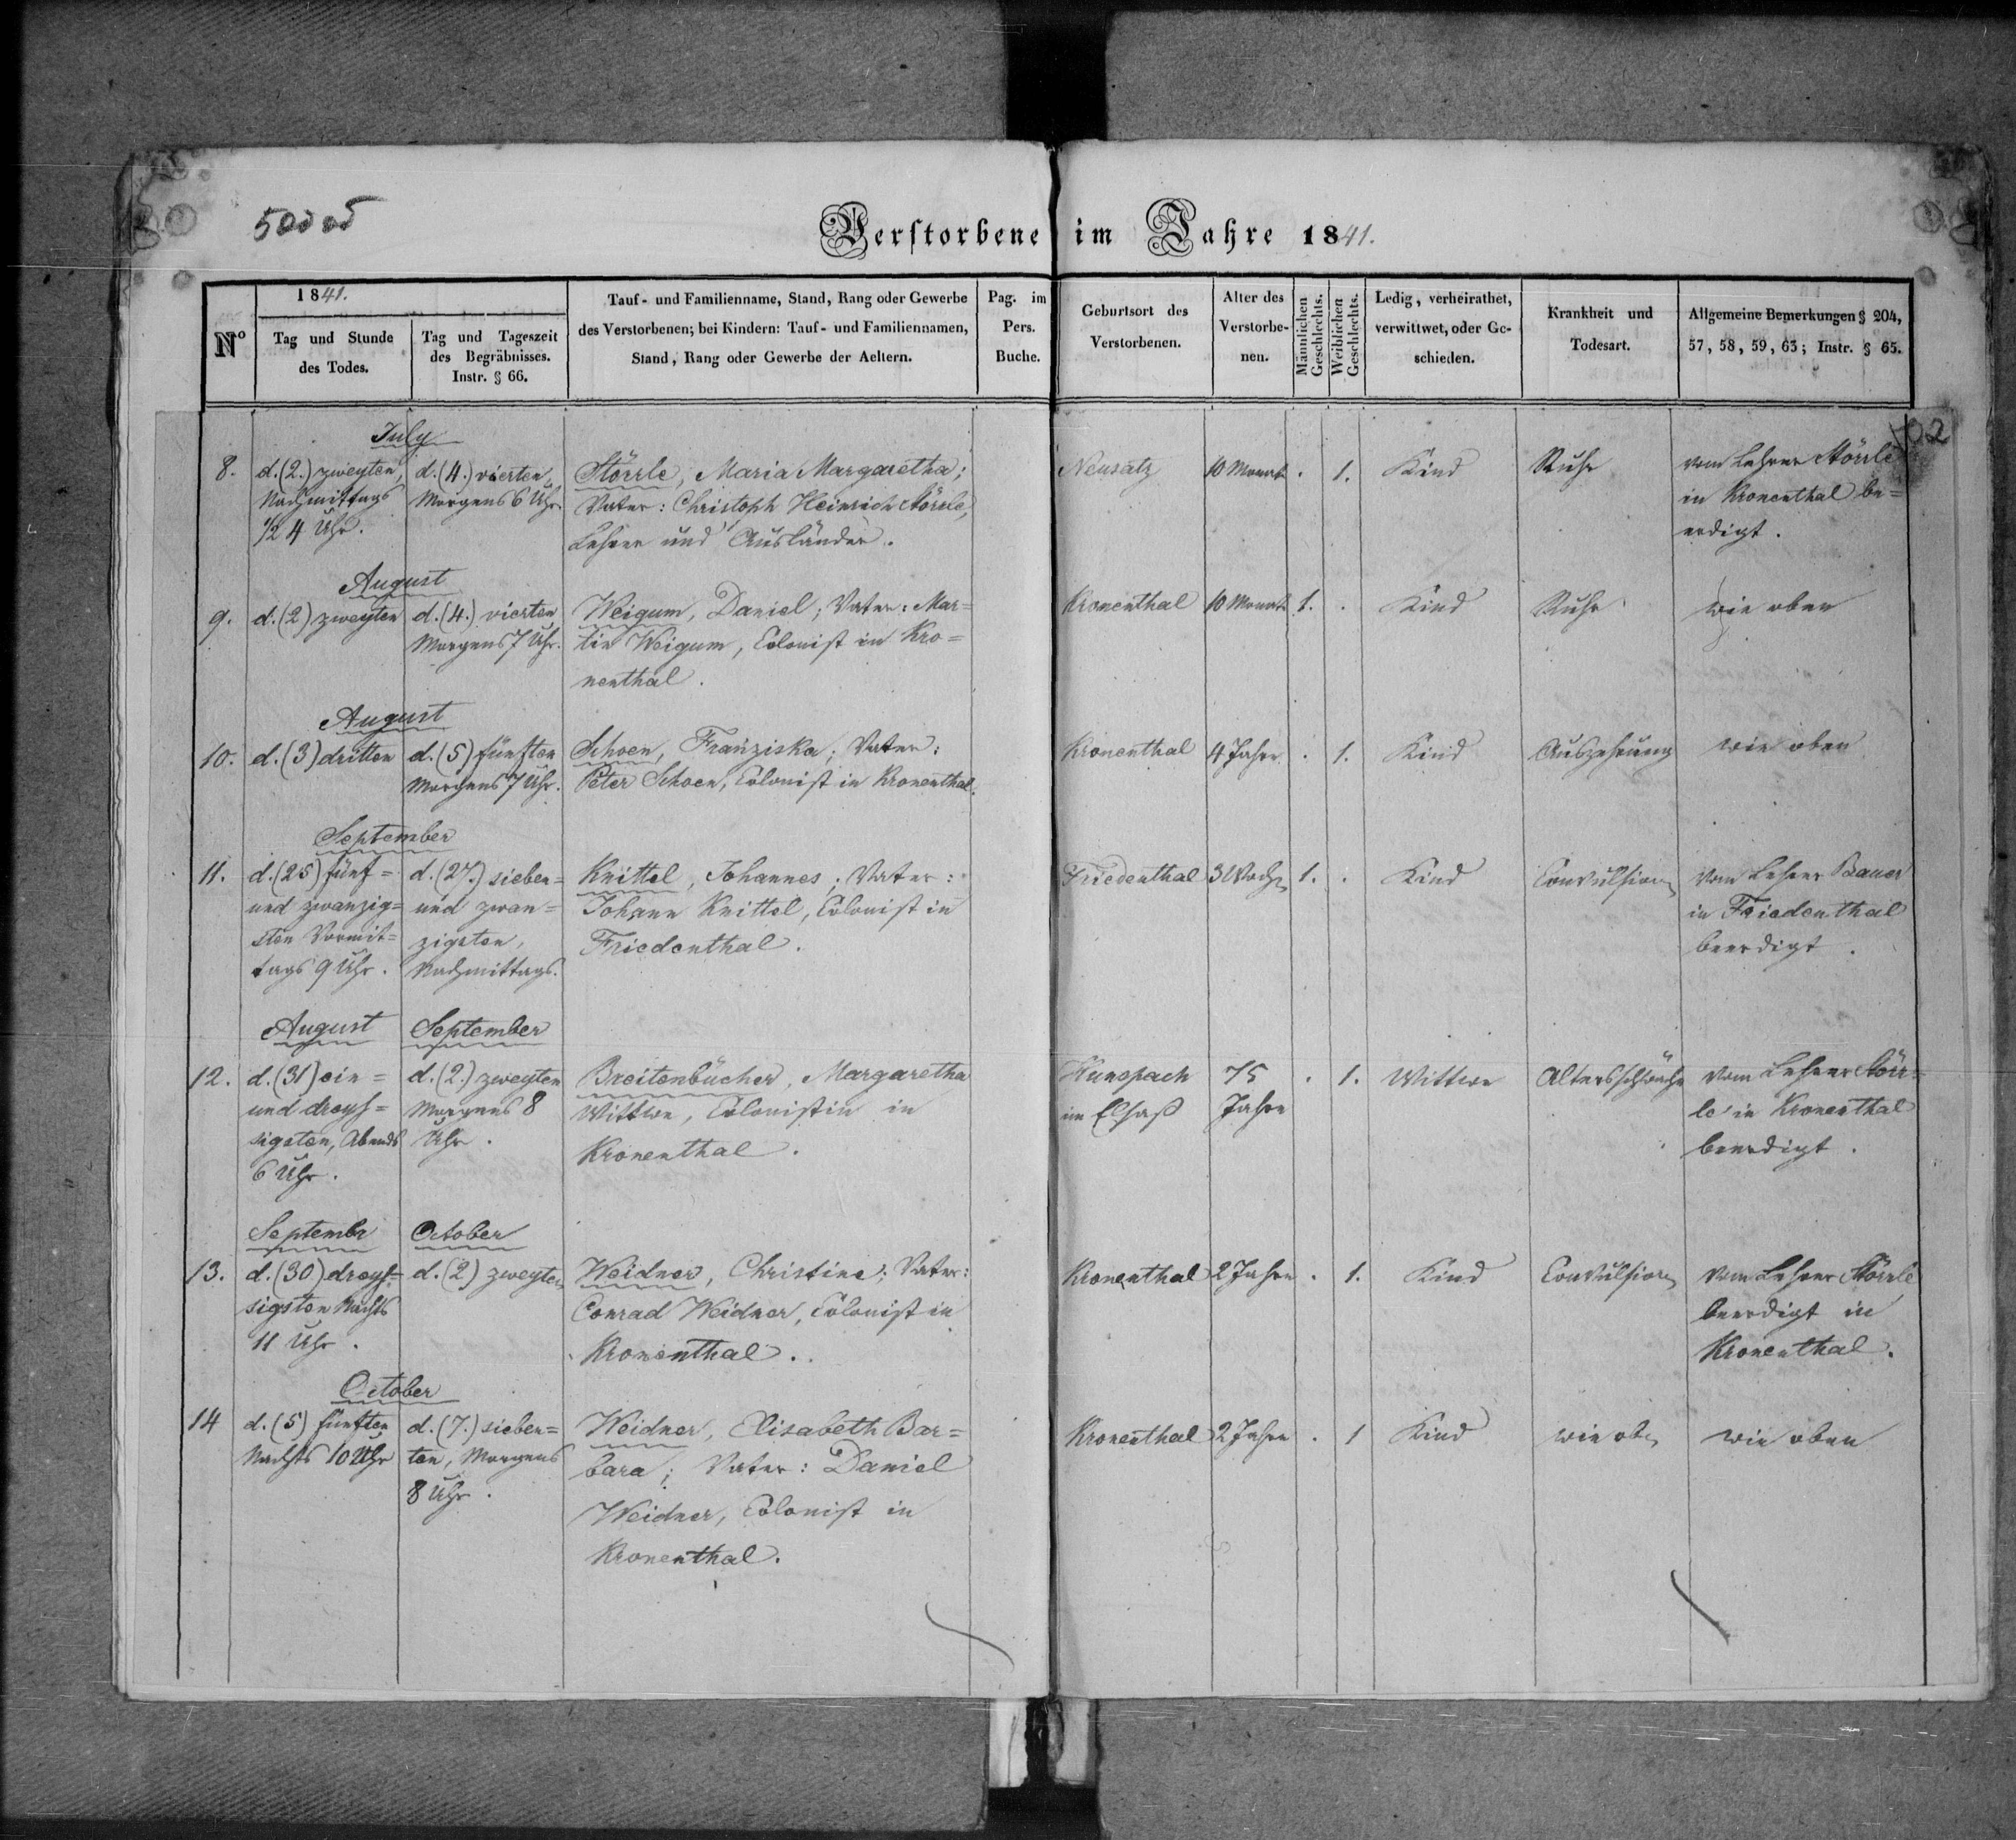 Verstorbene im Jahre 1841.
No
1841.
Tag und Stunde
des Todes.
Tag und Tageszeit
des Begräbnisses.
Instr. § 66.
Tauf- und Familienname, Stand, Rang oder Gewerbe
des Verstorbenen; bei Kindern: Tauf- und Familiennamen,
Stand, Rang oder Gewerbe der Aeltern.
Pag. im
Pers.
Buche.
Geburtsort des
Verstorbenen.
Alter des
Verstorbe-
nen.
Männlichen
Geschlechts.
Weiblichen
Geschlechts.
Ledig, verheirathet,
verwittwet, oder Ge-
schieden.
Krankheit und
Todesart.
Allgemeine Bemerkungen § 204,
57, 58, 59, 63; Instr. § 65.
July
8.
d. (2.) zweyten,
Nachmittags
1/2 4 Uhr.
d. (4.) vierten,
Morgens 6 Uhr.
Störrle, Maria Margaretha;
Vater: Christoph Heinrich Störrle,
Lehrer und Ausländer.
Neusatz
10 Monat
.
1.
Kind
Ruhr
vom Lehrer Störrle
in Kronenthal be=
erdigt.
August
9.
d. (2) zweyten
d. (4.) vierten
Morgens 7 Uhr.
Weigum, Daniel; Vater: Mar=
tin Weigum, Colonist in Kro=
nenthal.
Kronenthal
10 Monat
1.
.
Kind
Ruhr
wie oben
August
10.
d. (3) dritten
d. (5) fünften
Morgens 7 Uhr.
Schoen, Franziska; Vater:
Peter Schoen, Colonist in Kronenthal.
Kronenthal
4 Jahre
.
1.
Kind
Auszehrung
wie oben
September
11.
d. (25) fünf=
und zwanzig=
sten Vormit=
tags 9 Uhr.
d. (27.) sieben=
und zwan=
zigsten,
Nachmittags.
Knittel, Johannes; Vater:
Johann Knittel, Colonist in
Friedenthal.
Friedenthal
3 Woch
1.
.
Kind
Convulsion
Vom Lehrer Bauer
in Friedenthal
beerdigt.
August
September
12.
d. (31) ein=
und dreys=
sigsten, Abends
6 Uhr.
d. (2.) zweyten
Morgens 8
Uhr.
Breitenbücher, Margaretha
Wittwe, Colonistin in
Kronenthal.
Hunspach
im Elsaß
75
Jahre
.
1.
Wittwe
Altersschwäche
Vom Lehrer Störr=
le in Kronenthal
beerdigt.
Septembr
October
13.
d. (30) dreys=
sigsten Nachts
11 Uhr.
d. (2) zweyten
Weidner, Christine; Vater:
Conrad Weidner, Colonist in
Kronenthal.
Kronenthal
2 Jahre
.
1.
Kind
Convulsion
Vom Lehrer Störrle
beerdigt in
Kronenthal.
October
14
d. (5) fünften
Nachts 10 Uhr
d. (7.) sieben=
ten, Morgens
8 Uhr.
Weidner, Elisabeth Bar=
bara; Vater: Daniel
Weidner, Colonist in
Kronenthal.
Kronenthal
2 Jahre
.
1
Kind
wie oben
wie oben